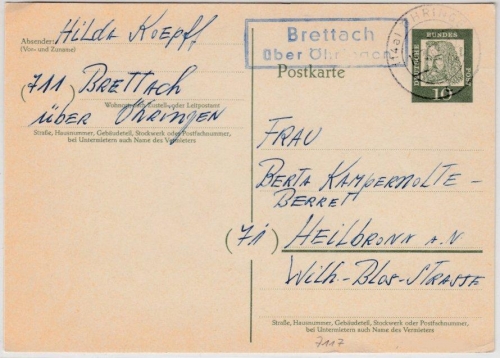 Absender: Hilda Koepff
(Vor- und Zuname)
(711) Brettach
Wohnort, auch Zustell- oder Leitpostamt
über Öhringen
Straße, Hausnummer, Gebäudeteil, Stockwerk oder Postfachnummer,
bei Untermietern auch Name des Vermieters
Brettach
über Öhringen
Postkarte
DEUTSCHE
BUNDES
POST
10
Frau
Berta
Berrett
(71) Heilbronn a.N
Wilh-Blos-Strasse
Straße, Hausnummer, Gebäudeteil, Stockwerk oder Postfachnummer,
bei Untermietern auch Name des Vermieters
7117